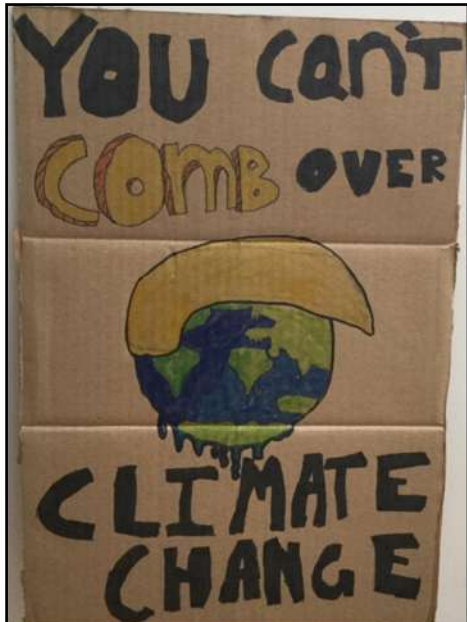 YOU can't
COmB OVER
CLIMATE
CHANGE